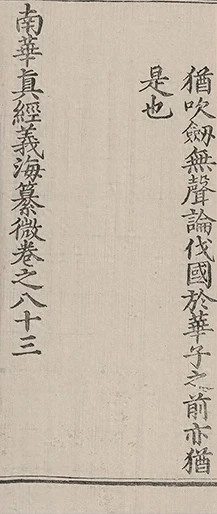 猶吹劔無聲論伐國於華子之前亦猶
是也
南華眞經義海纂微卷之八十三